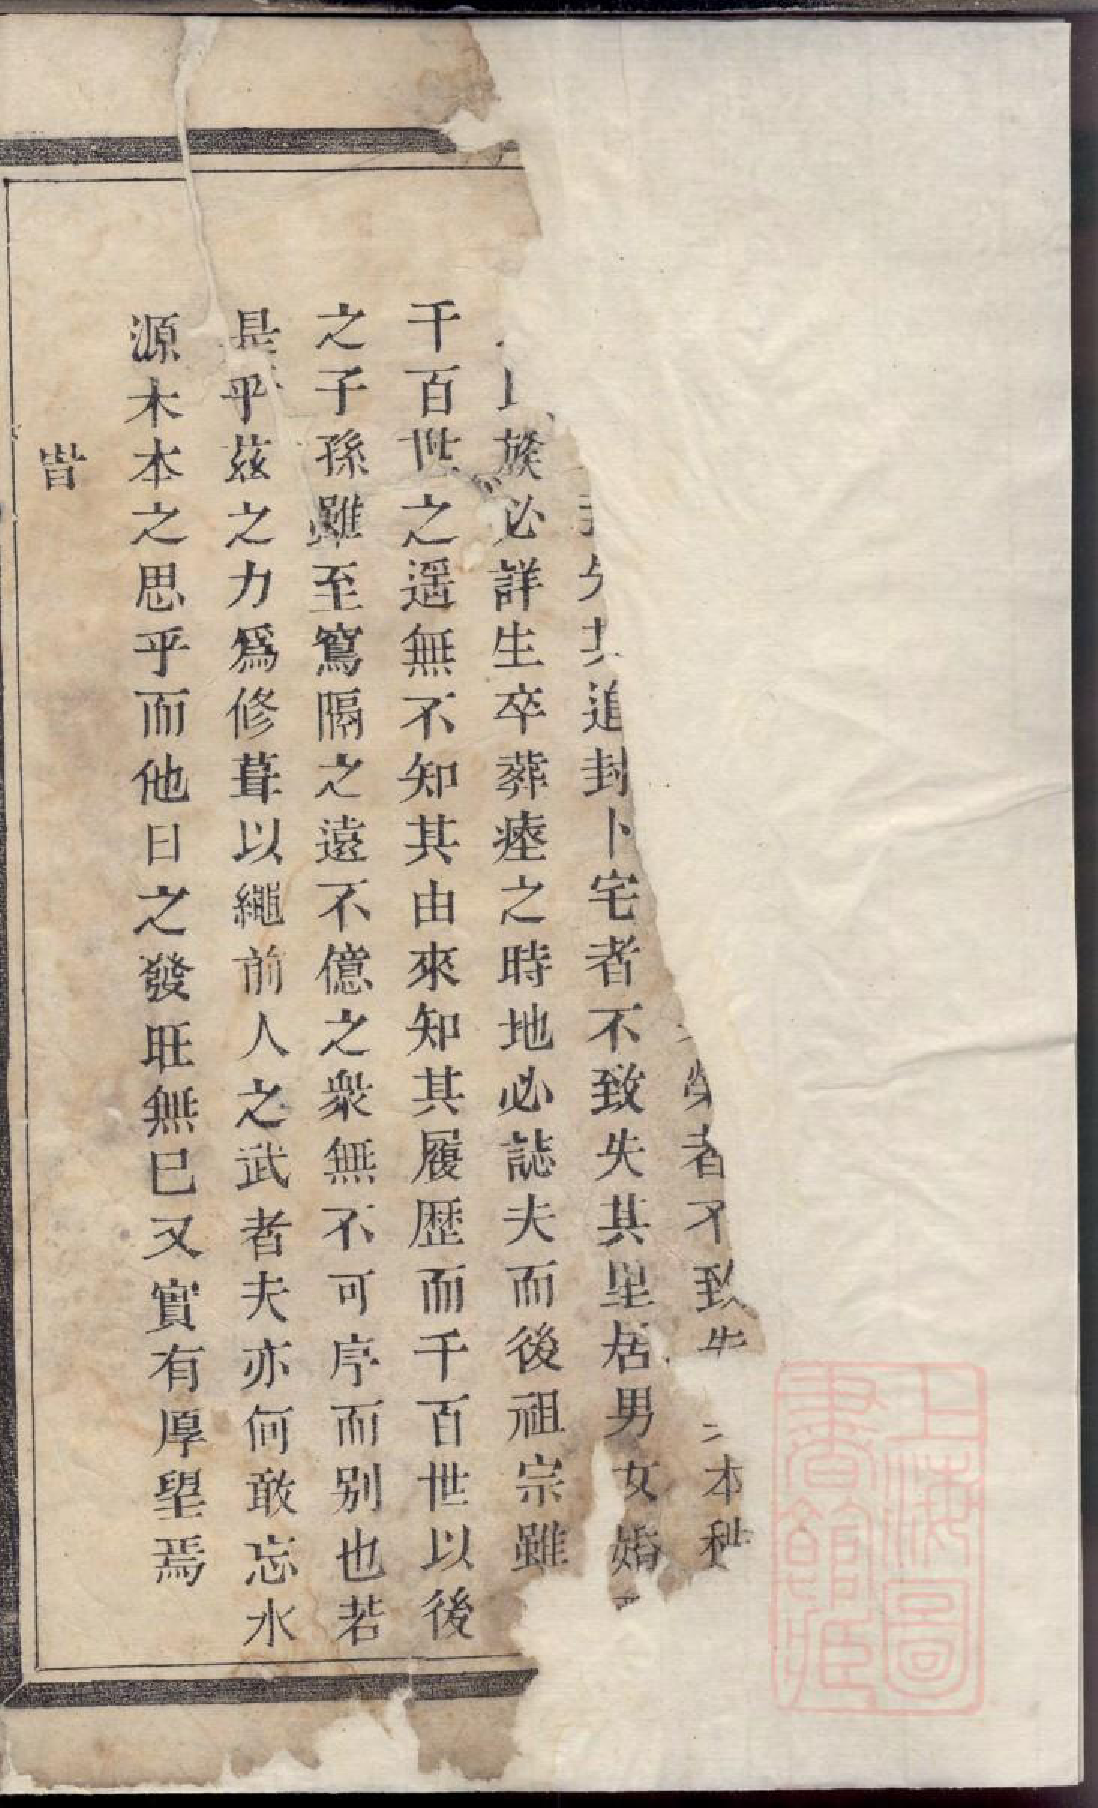 者不致
本
追封卜宅者不致失其里居男女婚
族必詳生卒葬瘞之時地必誌夫而後祖宗雖
千百世之遥無不知其由來知其履歷而千百世以後
之子孫雖至寫隔之遠不億之衆無不可序而别也若
是乎茲之力爲修葺以繩前人之武者夫亦何敢忘水
源木本之思乎而他日之發旺無已又實有厚望焉
旹
上海圖書館藏